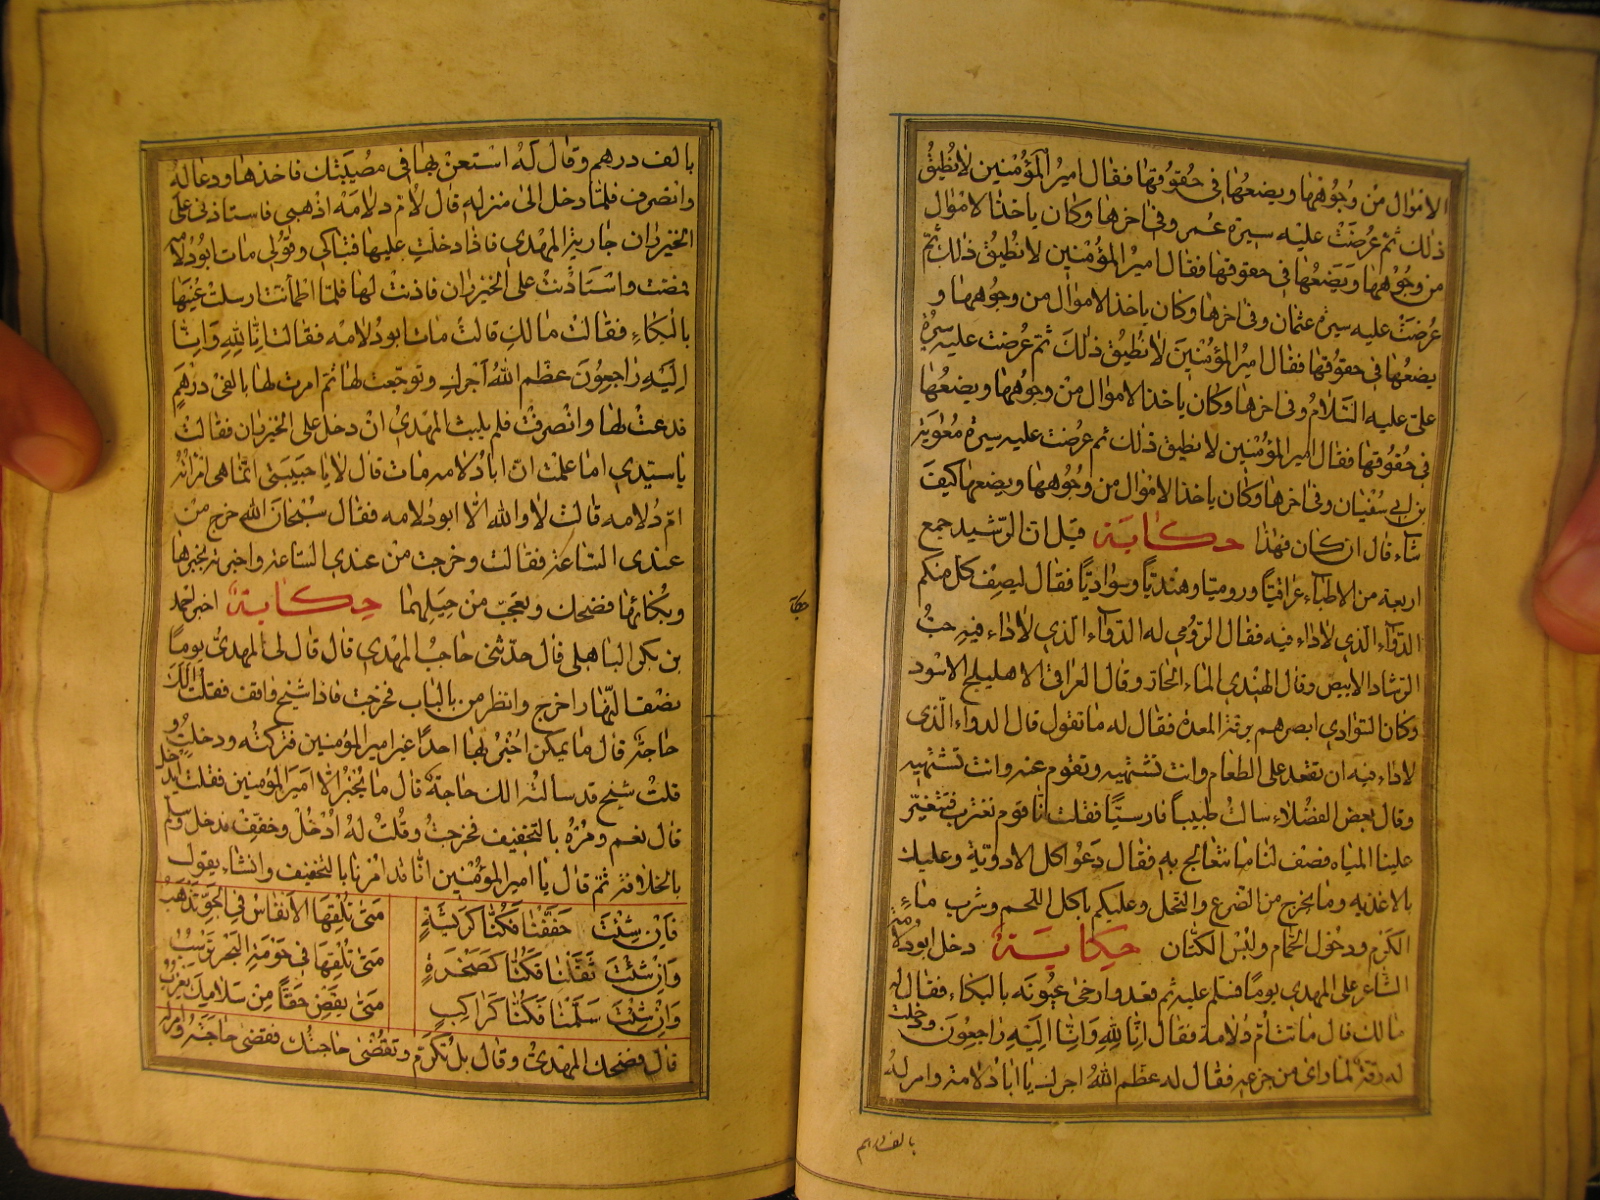 الاموال من وجوهها ويضعها في حقوقها فقال امير المؤمنين لا نطيق
ذلك ثم عرضت عليه سيرة عمر وفي اخرها وكان ياخذ الاموال
من وجوهها ويضعها في حقوقها فقال امير المؤمنين لا نطيق ذلك ثم
عرضت عليه سيرة عثمان وفي اخرها وكان ياخذ الاموال من وجوهها و
يضعها في حقوقها فقال امير المؤمنين لا نطيق ذلك ثم عرضت عليه سيرة
علي عليه السلام وفي اخرها وكان ياخذ الاموال من وجوهها ويضعها
في حقوقها فقال امير المؤمنين لا نطيق ذلك ثم عرضت عليه سيرة معوية
بن ابي سفيان وفي اخرها وكان ياخذ الاموال من وجوهها ويضعها كيف
شاء قال ان كان فهذا حكاية قيل ان الرشيد جمع
اربعة من الاطباء عراقيا وروميا وهنديا وسواديا فقال ليصف كل منكم
الدواء الذي لا داء فيه فقال الرومي له الدواء الذي لا داء فيه حب
الرشاد الابيض وقال الهندي الماء الحار وقال العراقي الاهليلج الاسود
وكان السوادي ابصرهم برقة المعدة فقال له ما تقول قال الدواء الذي
لا داء فيه ان تقعد على الطعام وانت تشتهيه وتقوم عنه وانت تشتهيه
وقال بعض الفضلاء سالت طبيبا فارسيا فقلت انا قوم نغترب فتتغير
علينا المياه فصف لنا ما نتعالج به فقال دعوا كل الادوية وعليك
بالاغذيه وما يخرج من الضرع والنحل وعليكم باكل اللحم وشرب ماء
الكرم ودخول الحمام ولبس الكتان حكاية دخل ابو دلامة
الشاعر على المهدي يوما فسلم عليه ثم قعد وارخى عيونه بالبكاء فقال له
مالك قال ماتت ام دلامة فقال انا لله وانا اليه راجعون ودخلت
له رقة لما راى من جزعه فقال له عظم الله اجرك يا ابا دلامة وامر له
بالف درهم
بالف درهم وقال له استعن بها في مصيبتك فاخذها ودعا له
وانصرف فلما دخل الى منزله قال لام دلامة اذهبي فاستاذني على
الخيزران جارية المهدي فاذا دخلت عليها فتباكي وقولي مات ابو دلامه
فمضت واستاذنت على الخيزران فاذنت لها فلما اطمأنت ارسلت عينها
بالبكاء فقالت مالك قالت مات ابو دلامه فقالت انا لله وانا
اليه راجعون عظم الله اجرك وتوجعت لها ثم امرت لها بالفي درهم
فدعت لها وانصرفت فلم يلبث المهدي ان دخل على الخيزران فقالت
يا سيدي اما علمت ان ابا دلامه مات قال لا يا حبيبتي انما هي امراته
ام دلامه قالت لا والله الا ابو دلامه فقال سبحان الله خرج من
عندي الساعة فقالت وخرجت من عندي الساعة واخبرته بخبرها
وبكائها فضحك وتعجب من حيلهما حكاية اخبر احمد
بن بكر الباهلي قال حدثني حاجب المهدي قال قال لي المهدي يوما
نصف النهار اخرج وانظر من بالباب فخرجت فاذا شيخ واقف فقلت الك
حاجة قال ما يمكن اخبر بها احدا غير امير المؤمنين فتركته ودخلت و
قلت شيخ قد سالته الك حاجة قال ما يخبر الا امير المؤمنين فقلت يدخل
قال نعم ومره بالتخفيف فخرجت وقلت له ادخل وخفف فدخل وسلم
بالخلافة ثم قال يا امير المؤمنين انا قد امرنا بالتخفيف وانشاء يقول
فان شئت خففنا فكنا كريشة متى تلقها الانفاس في الجو تذهب
وان شئت ثقلنا فكنا كصخرة متى تلقها في حومة البحر ترسب
وان شئت سلمنا فكنا كراكب متى يقض حقا من سلامك يغرب
قال فضحك المهدي وقال بل تكرم وتقضى حاجتك فقضى حاجته
حكاية